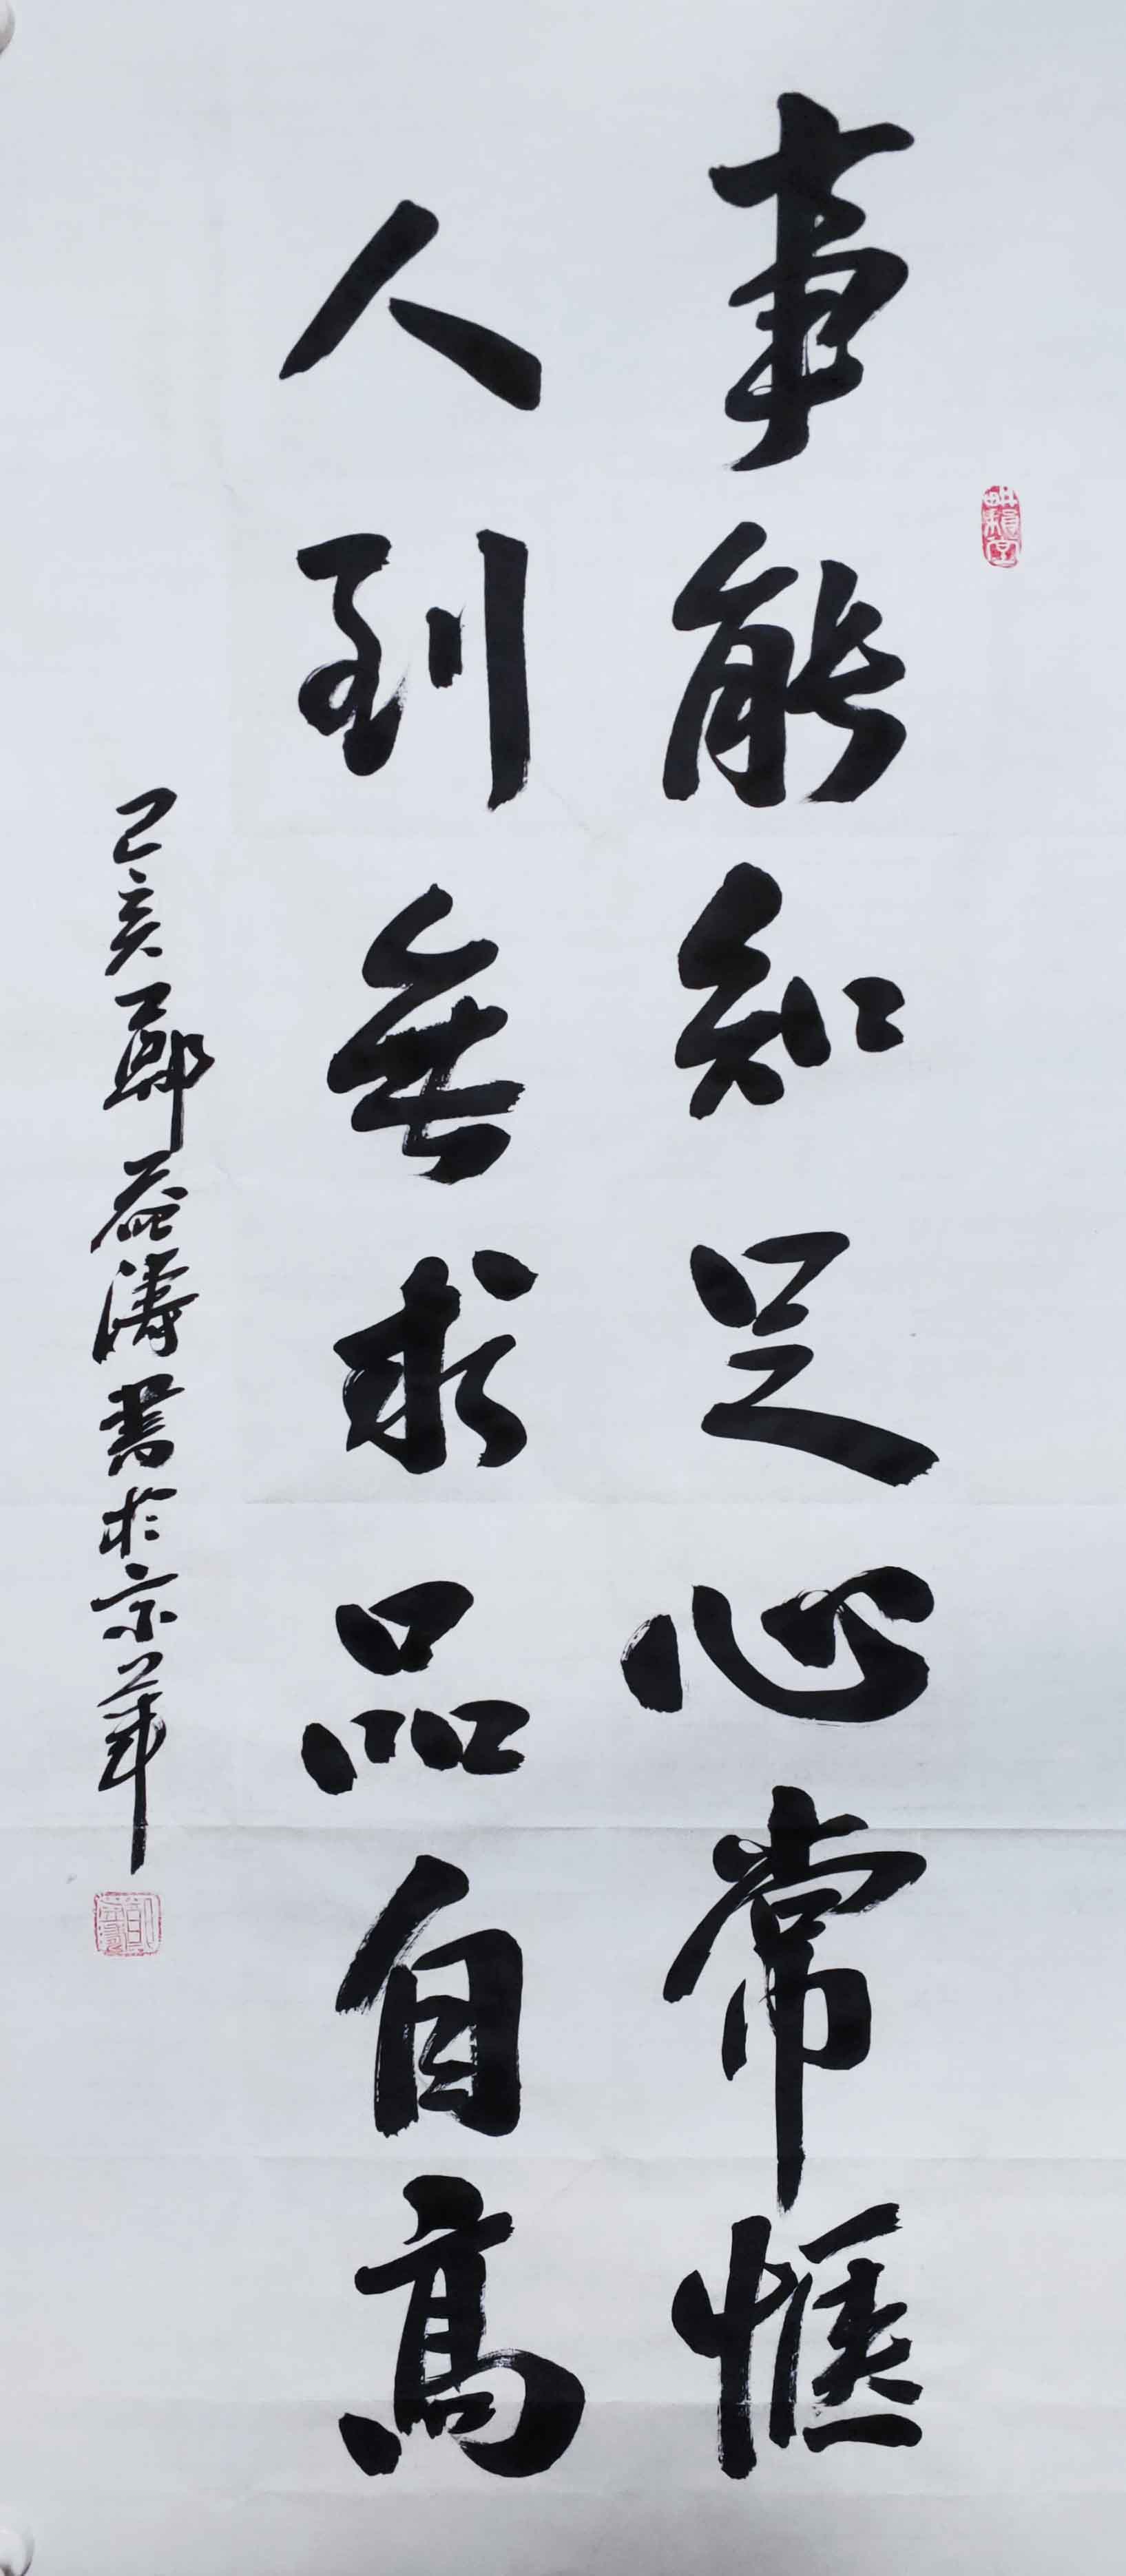 事能知足心常惬
人到無求品自高
己亥鄭益濤書於京華